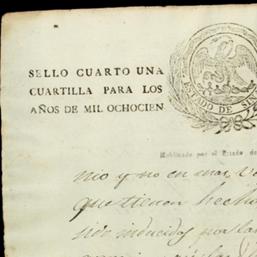 SELLO CUARTO UNA
CUARTILLA PARA LOS
AÑOS DE MIL OCHOCIEN
ESTADO DE
Habilitado por el Estado de
nio y no en mas,
que tienen hech
sion inducidos por la